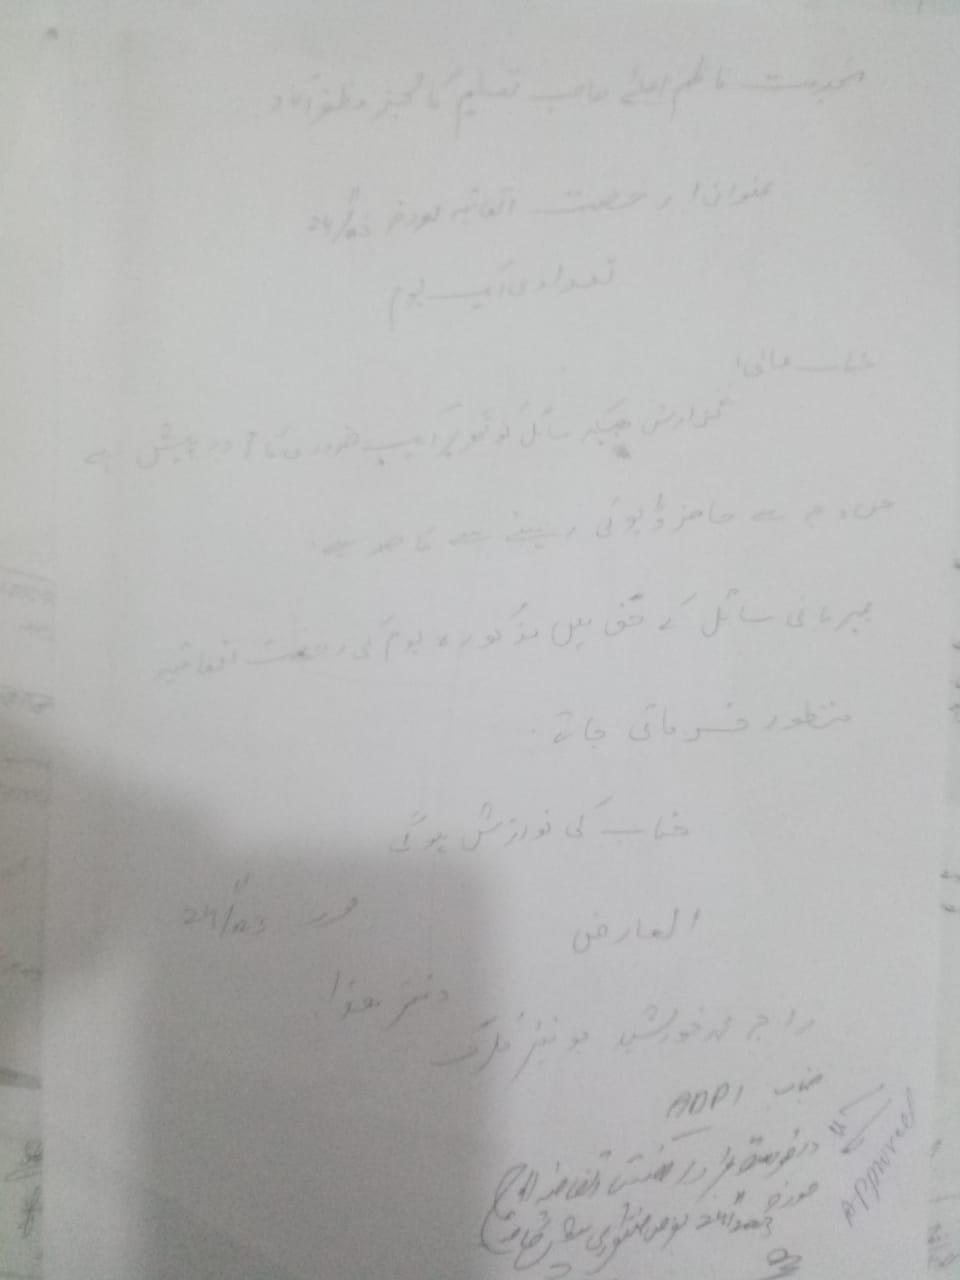 بخدمت ناظم اعلیٰ صاحب تعلیم کالجز مظفرآباد
عنوان: رخصت اتفاقیہ مورخہ 24/11
تعدادی ایک یوم
جناب عالی!
گزارش ہیکہ سائل کو ایک ضروری کام درپیش ہے
جس وجہ سے حاضر ڈیوٹی رہنے سے قاصر ہے
مہربانی سائل کے حق میں مذکورہ یوم کی رخصت اتفاقیہ
منظور فرمائی جائے۔
جناب کی نوازش ہوگی
العارض
دفتر ھذا
راجہ محمد خورشید جونیئر کلرک
جناب ADPI
درخواست رخصت اتفاقیہ
مورخہ 24/11/2023 منظوری
Approved